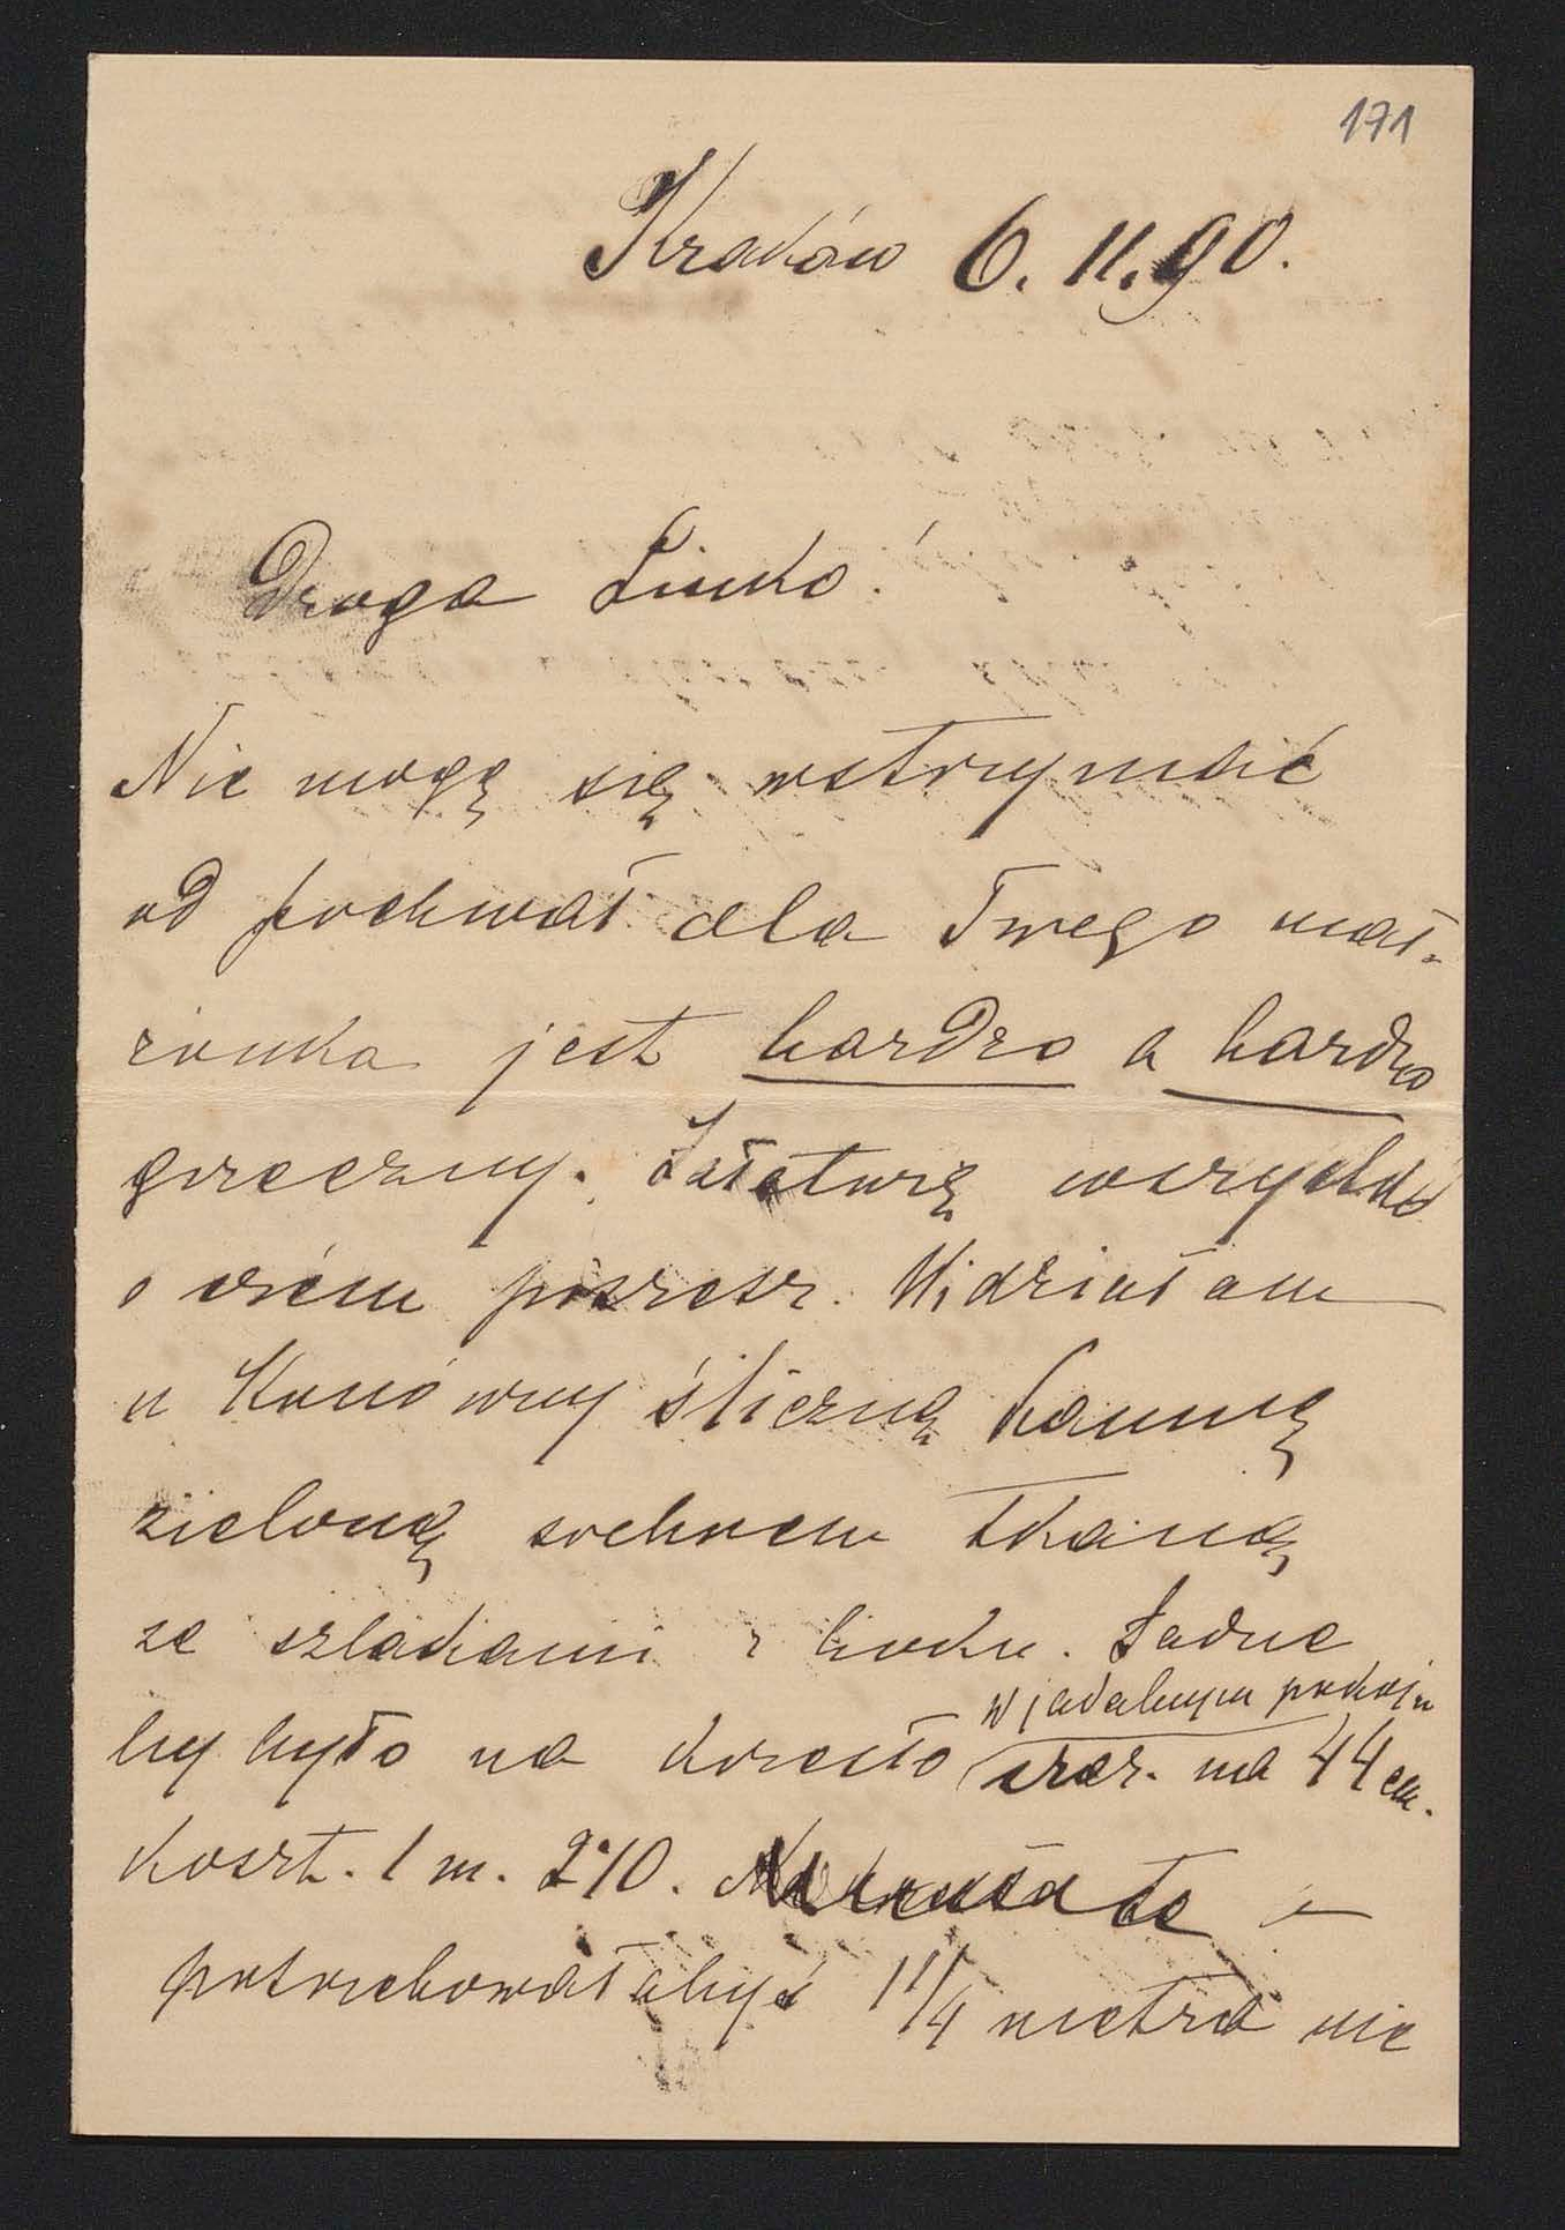 171
Kraków 6. 11. 90.
Droga Linko!
Nie mogę się wstrzymać
od pochwał dla Twego mał-
żonka jest bardzo a bardzo
grzeczny. Załatwię wszystko
o czém piszesz. Widziałam
u Konówny śliczną kanwę
zieloną tkaną
ze szlakami z boku. Ładne
w jadalnym pokoju
by było na krzesło szer. ma 44 cm.
koszt. 1 m. 2·10.
potrzebowałabyś 1 1/4 metra nie